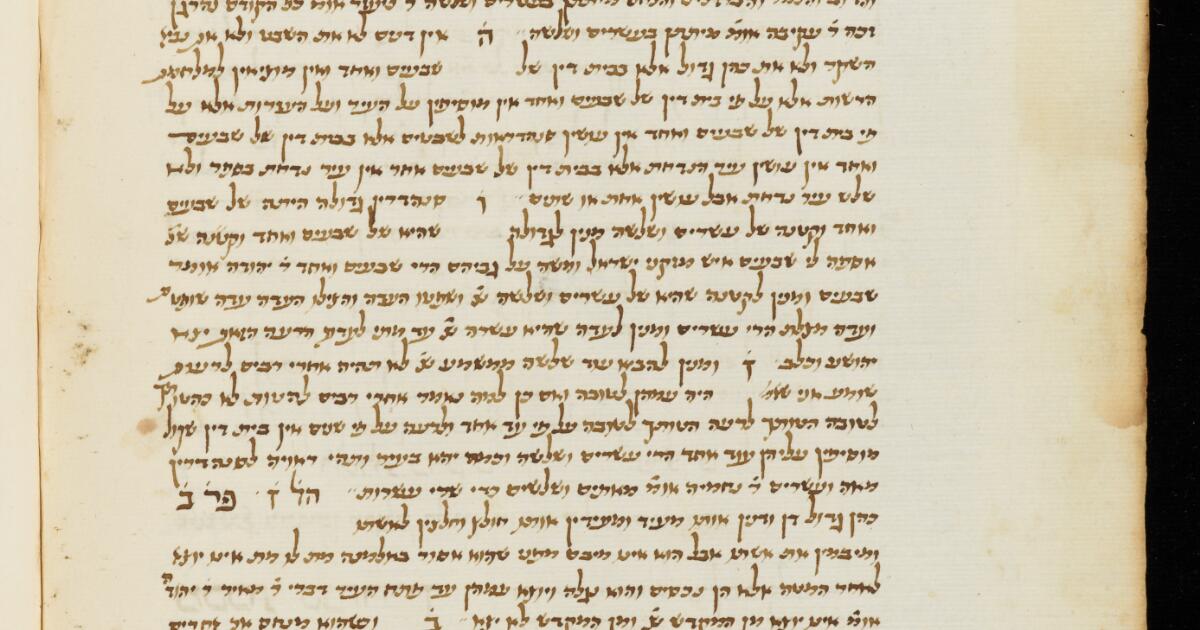 זכה ר׳ עקיבה אומ׳ מיתתן בעשרים ושלשה ה אין דנים לא את השבט ולא את נביא
השקר ולא את כהן גדול אלא בבית דין של שבעים ואחד ואין מוציאין למלחמת
הרשות אלא על פי בית דין של שבעים ואחד אין מוסיפין על העיר ועל העזרות אלא על
פי בית דין של שבעים ואחד אין עושין סנהדראות לשבטים אלא בבית דין של שבעים
ואחד אין עושין עיר הנדחת אלא בבית דין של שבעים אחד אין עיר נדחת בספר ולא
שלש עיר נדחת אבל עושין אחת או שתים ו סנהדרין גדולה היתה של שבעים
ואחד וקטנה של עשרים ושלשה מנין לגדולה שהיא של שבעים ואחד וקטנה של
אספה לי שבעים איש מזקני ישראל ומשה על גביהם הרי שבעים ואחד ר׳ יהודה אומר
שבעים ומנין לקטנה שהיא של עשרים ושלשה שנ׳ ושפטו העדה והצילו העדה עדה שופטת
ועדה מצלת הרי עשרים ומנין לעדה שהיא עשרה שנ׳ עד מתי לעדה הרעה הזאת יצא
יהושע וכלב ז ומנין להביא עוד שלשה ממשמע שנ׳ לא תהיה אחרי רבים לרעות
שומע אני היה עמהן לטובה ואם כן למה נאמר אחרי רבים להטות לא כהטייתך
לטובה הטותך לרעה הטותך לטובה על פי עד אחד ולרעה על פי שנים אין בית דין שקול
מוסיפין עליהן עוד אחד הרי עשרים ושלשה וכמה יהא בעיר ותהי ראויה לסנהדרין
מאה ועשרים ר׳ נחמיה אומ׳ מאתים ושלשים כדי שרי עשרות הל׳ ז פר׳ ב
כהן גדול דן ודנין אותו מעיד ומעידין אותו חולץ וחולצין לאשתו
ומיבמין את אשתו אבל הוא אינו מיבם מפני שהוא אסור באלמנה מת לו מת אינו יוצא
לאחר המטה אלא הן נכסים והוא נגלה ויוצא עמהן עד פתח העיר דברי ר׳ מאיר ר׳ יהודה
אומ׳ אינו יוצא מן המקדש שנ׳ ומן המקדש לא יצא ב וכשהוא מנחם את אחרים